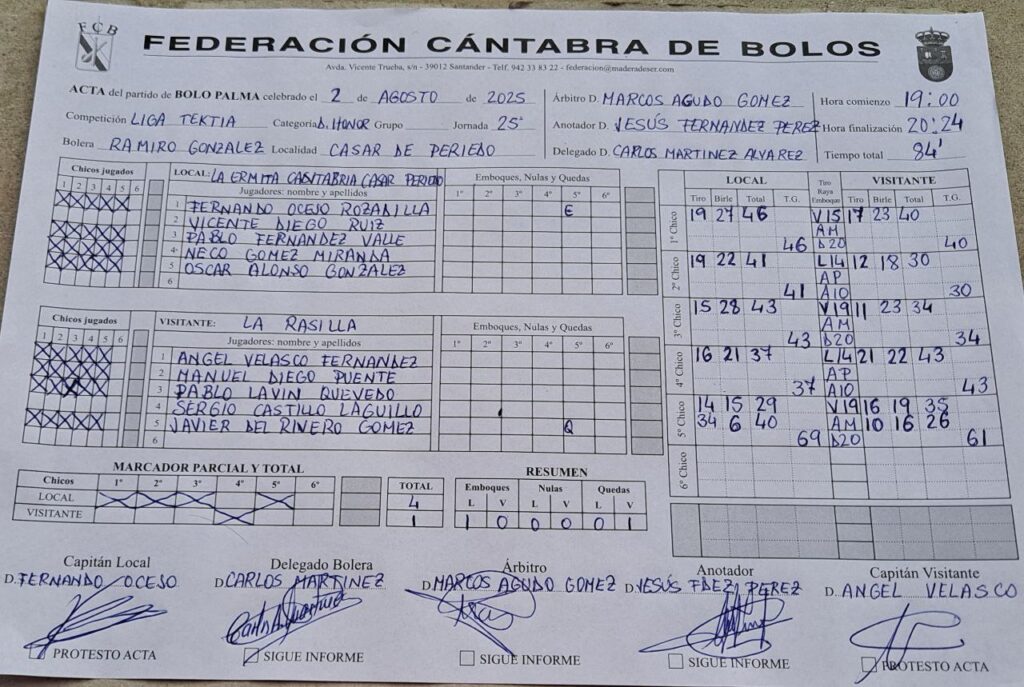 FCB
FEDERACIÓN CÁNTABRA DE BOLOS
Avda. Vicente Trueba, s/n - 39012 Santander - Telf. 942 33 83 22 - federacion@maderadeser.com
ACTA del partido de BOLO PALMA celebrado el 2 de AGOSTO de 2025
Competición LIGA TEKTIA Categoría D. HONOR Grupo Jornada 25ª
Bolera RAMIRO GONZALEZ Localidad CASAR DE PERIEDO
Árbitro D. MARCOS AGUDO GOMEZ Hora comienzo 19:00
Anotador D. JESÚS FERNANDEZ PEREZ Hora finalización 20:24
Delegado D. CARLOS MARTINEZ ALVAREZ Tiempo total 84'
Chicos jugados
1 2 3 4 5 6
LOCAL: LA ERMITA CANTABRIA CASAR PERIEDO
Jugadores: nombre y apellidos
Emboques, Nulas y Quedas
1º 2º 3º 4º 5º 6º
1 FERNANDO OCEJO ROZADILLA E
2 VICENTE DIEGO RUIZ
3 PABLO FERNANDEZ VALLE
4 NECO GOMEZ MIRANDA
5 OSCAR ALONSO GONZALEZ
6
Chicos jugados
1 2 3 4 5 6
VISITANTE: LA RASILLA
Jugadores: nombre y apellidos
Emboques, Nulas y Quedas
1º 2º 3º 4º 5º 6º
1 ANGEL VELASCO FERNANDEZ
2 MANUEL DIEGO PUENTE
3 PABLO LAVIN QUEVEDO
4 SERGIO CASTILLO LAGUILLO
5 JAVIER DEL RIVERO GOMEZ Q
6
LOCAL Tiro Raya Emboque VISITANTE
Tiro Birle Total T.G. Tiro Birle Total T.G.
1º Chico 19 27 46 V15 17 23 40
AM
46 D20 40
2º Chico 19 22 41 L14 12 18 30
AP
41 A10 30
3º Chico 15 28 43 V19 11 23 34
AM
43 D20 34
4º Chico 16 21 37 L14 21 22 43
AP
37 A10 43
5º Chico 14 15 29 V19 16 19 35
34 6 40 AM 10 16 26
69 D20 61
6º Chico
MARCADOR PARCIAL Y TOTAL
Chicos 1º 2º 3º 4º 5º 6º TOTAL
LOCAL 4
VISITANTE 1
RESUMEN
Emboques Nulas Quedas
L V L V L V
1 0 0 0 0 1
Capitán Local
D. FERNANDO OCEJO
PROTESTO ACTA
Delegado Bolera
D CARLOS MARTINEZ
SIGUE INFORME
Árbitro
D MARCOS AGUDO GOMEZ
SIGUE INFORME
Anotador
D. JESÚS FDEZ PEREZ
SIGUE INFORME
Capitán Visitante
D. ANGEL VELASCO
PROTESTO ACTA